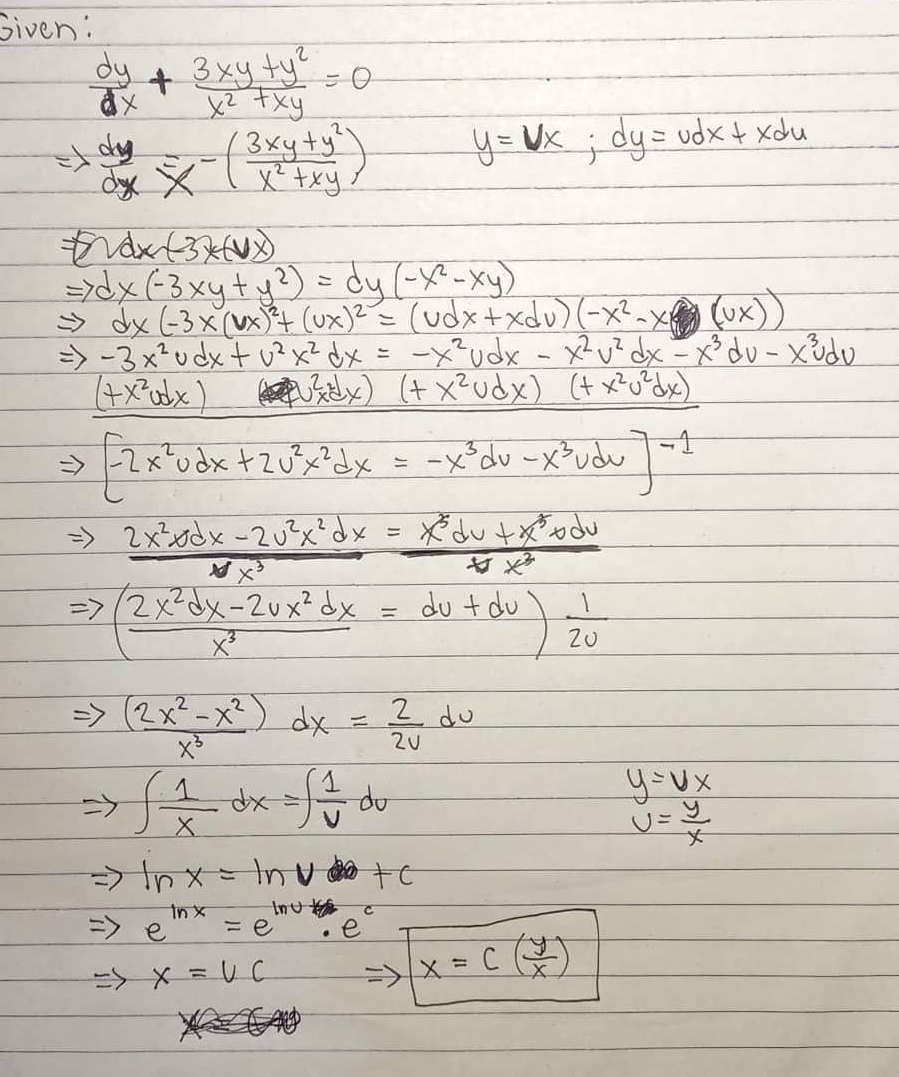 Given:
dy/dx + (3xy + y²)/(x² + xy) = 0
=> dy/dx = -((3xy + y²)/(x² + xy))    y = vx ; dy = vdx + xdv
=> dx(-3xy + y²) = dy(-x² - xy)
=> dx(-3x(vx)² + (vx)² = (vdx + xdv)(-x² - x(vx))
=> -3x²vdx + v²x²dx = -x²vdx - x²v²dx - x³dv - x³vdv
(+x²vdx) (+v²x²dx) (+x²vdx) (+x²v²dx)
=> [-2x²vdx + 2v²x²dx = -x³dv - x³vdv] -1
=> (2x²vdx - 2v²x²dx)/(v x³) = (x³dv + x³vdv)/(v x³)
=> ((2x²dx - 2vx²dx)/x³ = dv + dv) 1/2v
=> (2x² - x²)/x³ dx = 2/2v dv
=> ∫ 1/x dx = ∫ 1/v dv    y = vx
v = y/x
=> ln x = ln v + c
=> e^(ln x) = e^(ln v) . e^c
=> x = v c    => x = c (y/x)